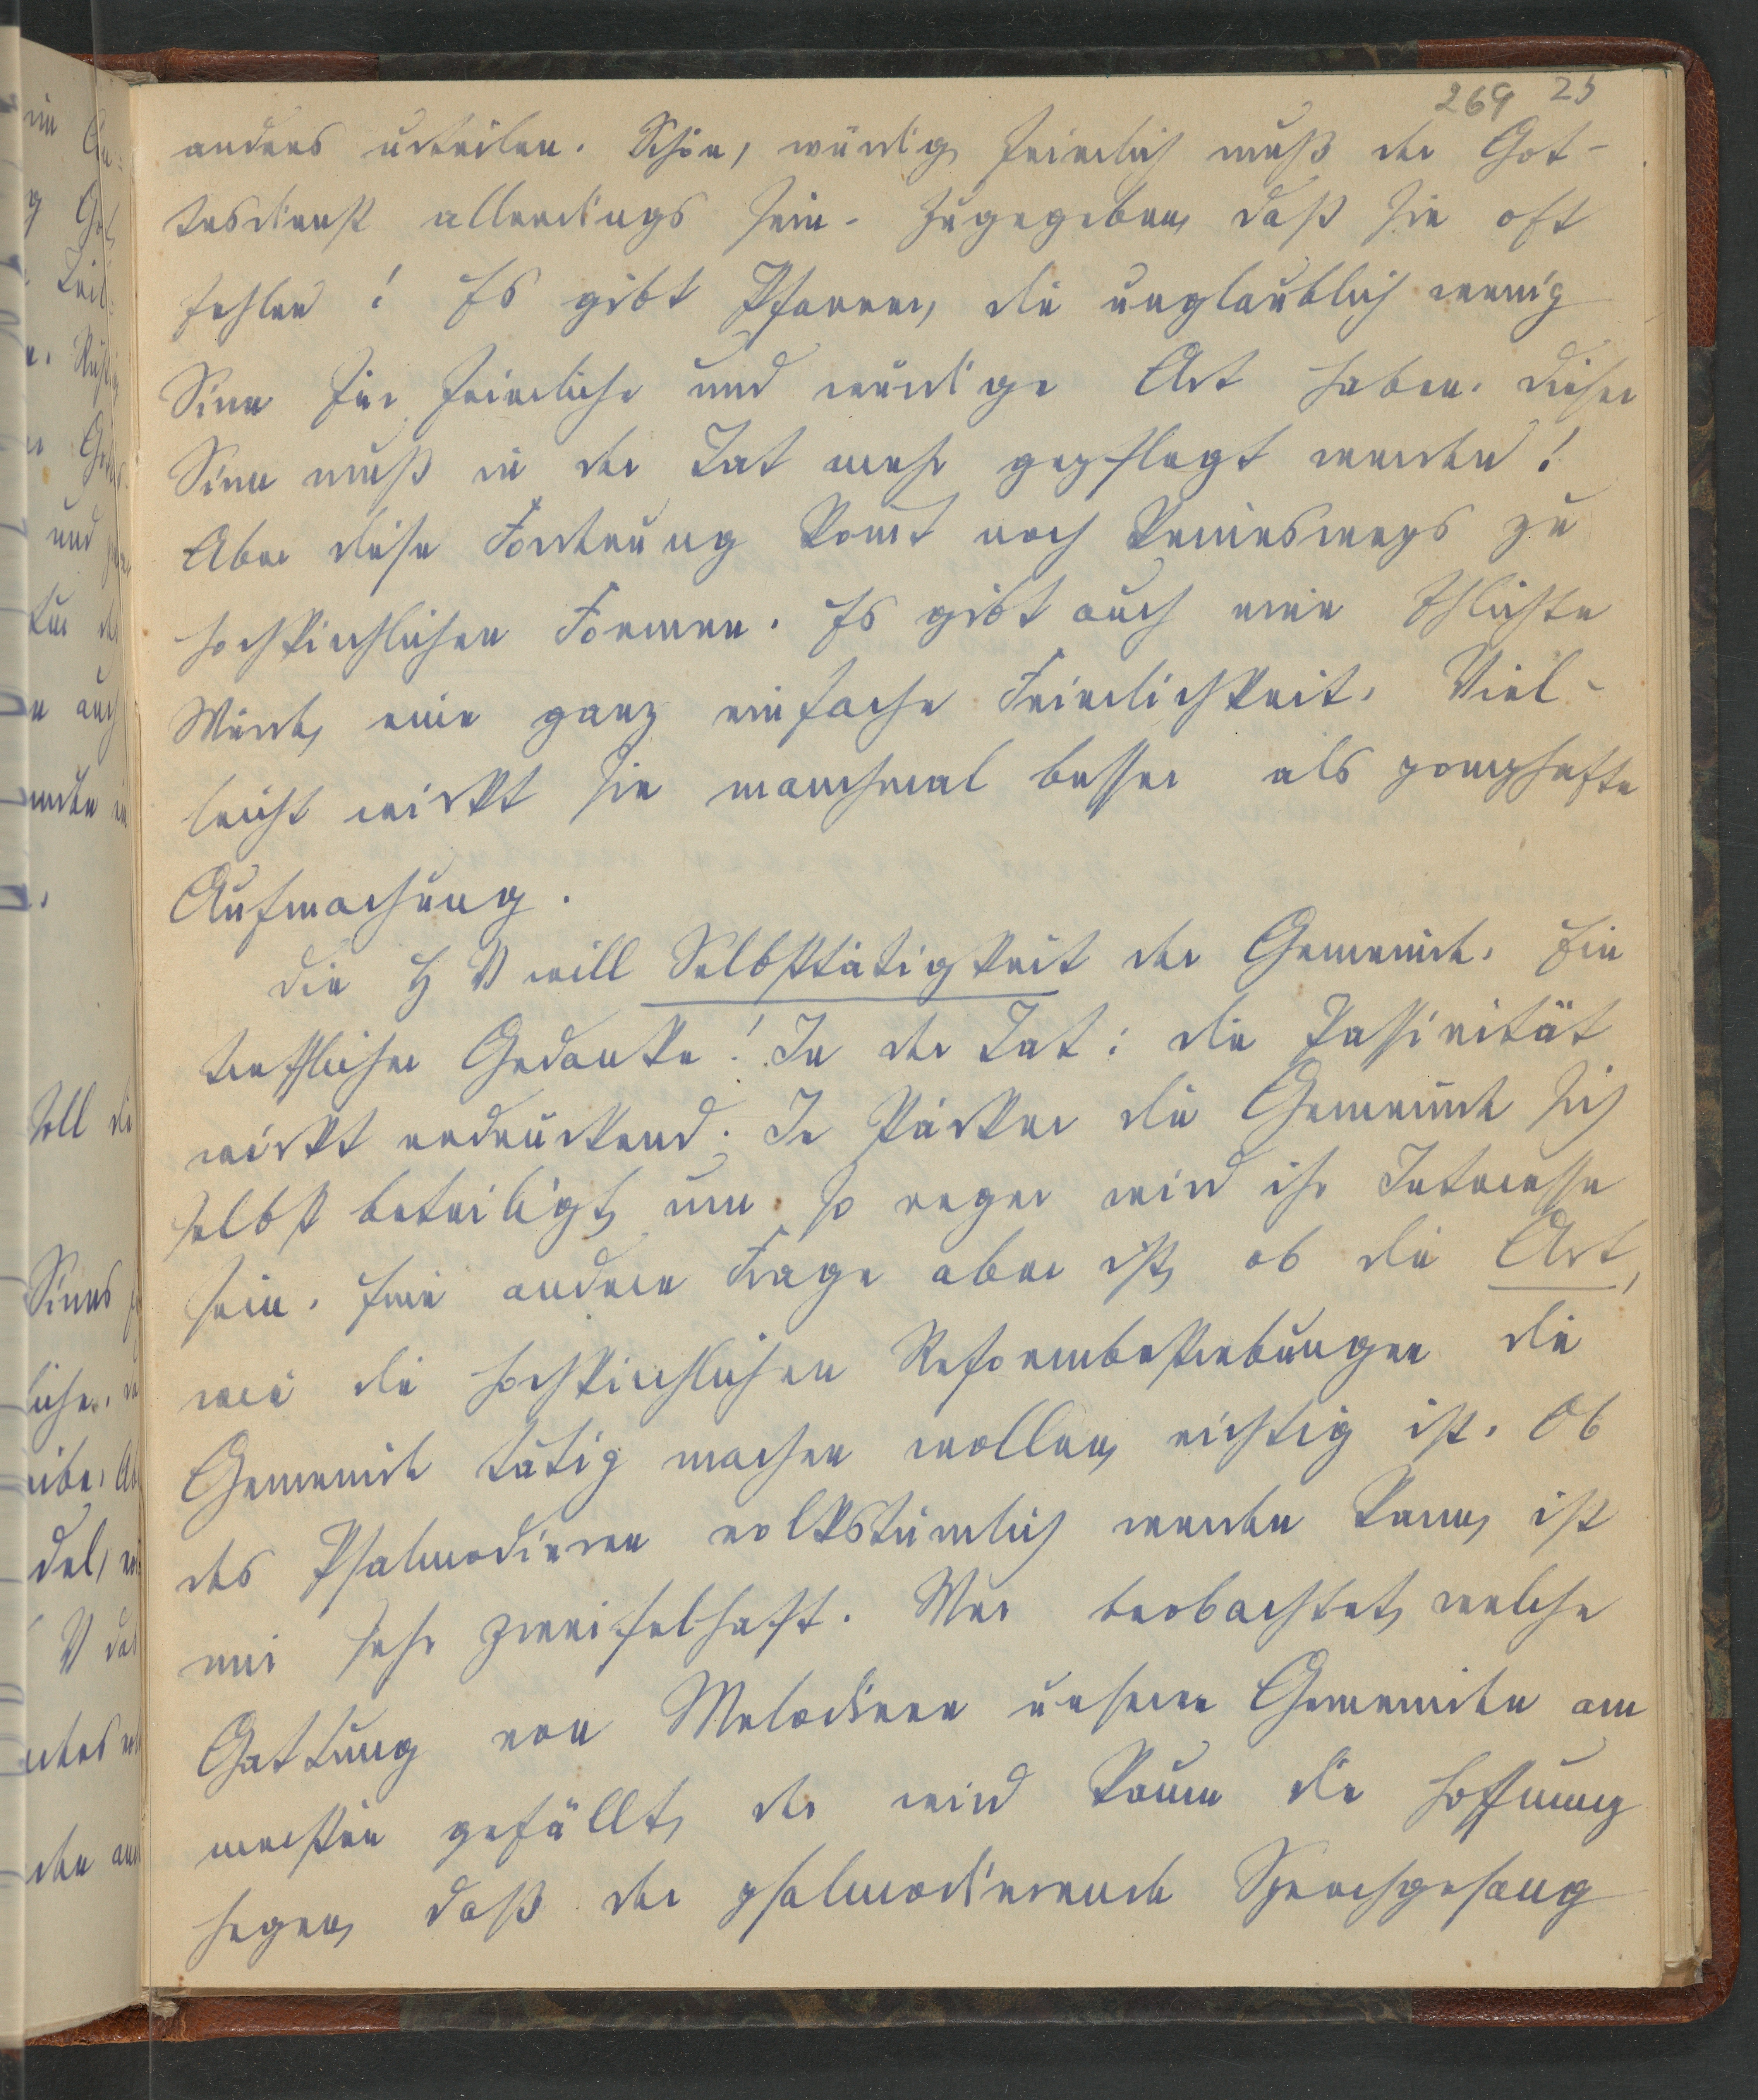 269 25
anders urteilen. Schön, würdig, feierlich muß der Got-
tesdienst allerdings sein. Zugegeben, daß sie oft
fehlen! Es gibt Pfarrer, die unglaublich wenig
Sinn für feierliche und würdige Art haben. Dieser
Sinn muß in der Tat mehr gepflegt werden!
Aber diese Forderung kom̄t noch keineswegs zu
hochkirchlichen Formen. Es gibt auch eine schlichte
Würde, eine ganz einfache Feierlichkeit. Viel-
leicht wirkt sie manchmal besser als pomphafte
Aufmachung.
Die H V will Selbsttätigkeit der Gemeinde. Ein
trefflicher Gedanke! In der Tat: die Passivität
wirkt erdrückend. Je stärker die Gemeinde sich
selbst beteiligt, um so reger wird ihr Interesse
sein. Eine andere Frage aber ist, ob die Art,
wie die hochkirchlichen Reformbestrebungen die
Gemeinde tätig machen wollen, richtig ist. Ob
das Psalmodieren volkstümlich werden kann, ist
mir sehr zweifelhaft. Wer beobachtet, welche
Gattung von Melodieen unseren Gemeinden am
meisten gefällt, der wird kaum die Hoffnung
hegen, daß der psalmodierende Sprechgesang